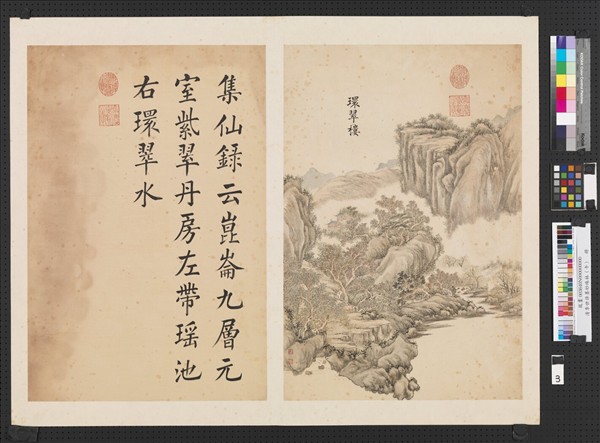 環翠樓
集仙録云崑崙九層元
室紫翠丹房左帶瑶池
右環翠水
3